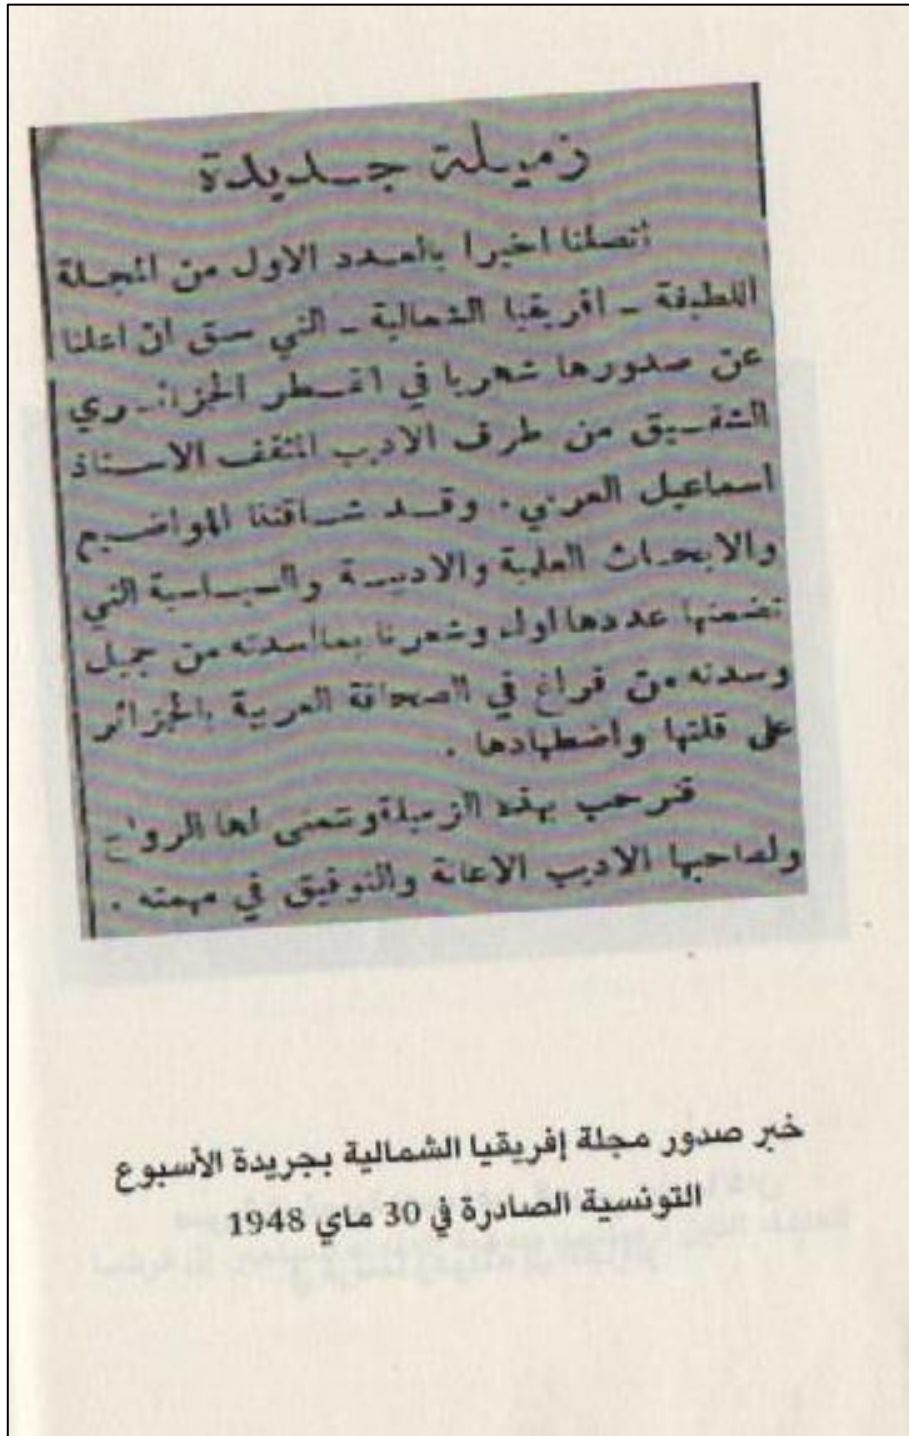 زميلة جديدة
اتصلنا اخيرا بالعدد الاول من المجلة
اللطيفة - افريقيا الشمالية - التي سبق ان اعلنا
عن صدورها شهريا في القطر الجزائري
الشقيق من طرف الاديب المثقف الاستاذ
اسماعيل العربي . وقد شاقتنا المواضيع
والابحاث العلمية والادبية والسياسية التي
تضمنها عددها اول وشعرنا بما اسدته من جميل
وسدته من فراغ في الصحافة العربية بالجزائر
على قلتها واضطهادها .
فنرحب بهذه الزميلة ونتمنى لها الرواج
ولصاحبها الاديب الاعانة والتوفيق في مهمته .
خبر صدور مجلة إفريقيا الشمالية بجريدة الأسبوع
التونسية الصادرة في 30 ماي 1948